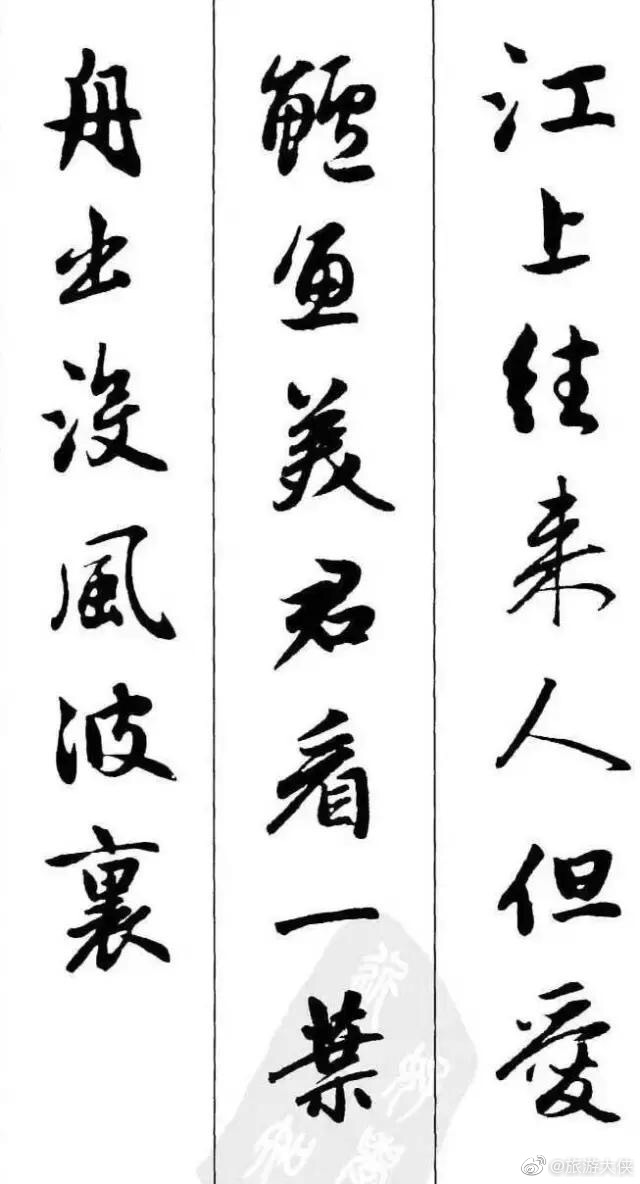 江上往来人但愛
鱸魚美君看一葉
舟出没風波裏
@旅游大侠